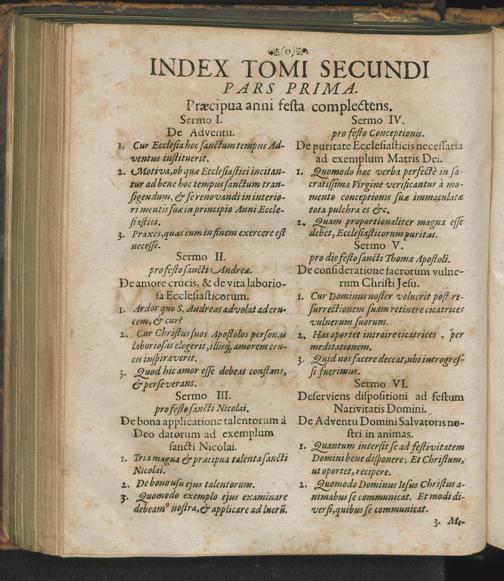 (0)
INDEX TOMI SECUNDI
PARS PRIMA.
Præcipua anni festa complectens.
Sermo I.
De Adventu.
1. Cur Ecclesia hoc sanctum tempus Ad-
ventus instituerit.
2. Motiva, ob quæ Ecclesiastici incitan-
tur ad bene hoc tempus sanctum tran-
sigendum, & se renovandi in interio-
ri mentis suæ in principio Anni Eccle-
siastici.
3. Praxes, quas eum in finem exercere est
necesse.
Sermo II.
pro festo sancti Andreæ.
De amore crucis, & de vita laborio-
sa Ecclesiasticorum.
1. Ardor quo S. Andreas advolat ad cru-
cem, & cur?
2. Cur Christus suos Apostolos personas
laboriosas elegerit, illisq; amorem cru-
cis inspiraverit.
3. Quod hic amor esse debeat constans,
& perseverans.
Sermo III.
pro festo sancti Nicolai.
De bona applicatione talentorum à
Deo datorum ad exemplum
sancti Nicolai.
1. Tria magna & præcipua talenta sancti
Nicolai.
2. De bono usu ejus talentorum.
3. Quomodo exemplo ejus examinare
debeamꝰ nostra, & applicare ad lucrū.
Sermo IV.
pro festo Conceptionis.
De puritate Ecclesiasticis necessaria
ad exemplum Matris Dei.
1. Quomodo hæc verba perfectè in sa-
cratissima Virgine verificantur à mo-
mento conceptionis suæ immaculatæ
tota pulchra es &c.
2. Quam proportionaliter magna esse
debet, Ecclesiasticorum puritas.
Sermo V.
pro die festo sancti Thomæ Apostoli.
De consideratione sacrorum vulne-
rum Christi Jesu.
1. Cur Dominus noster voluerit post re-
surrectionem suam retinere cicatrices
vulnerum suorum.
2. Has oportet introire cicatrices, per
meditationem.
3. Quid nos facere deceat, ubi introgres-
si fuerimus.
Sermo VI.
Deserviens dispositioni ad festum
Nativitatis Domini.
De Adventu Domini Salvatoris no-
stri in animas.
1. Quantum intersit se ad festivitatem
Domini bene disponere, Et Christum,
ut oportet, recipere.
2. Quomodo Dominus Iesus Christus a-
nimabus se communicat. Et modi di-
versi, quibus se communicat.
3. Me-